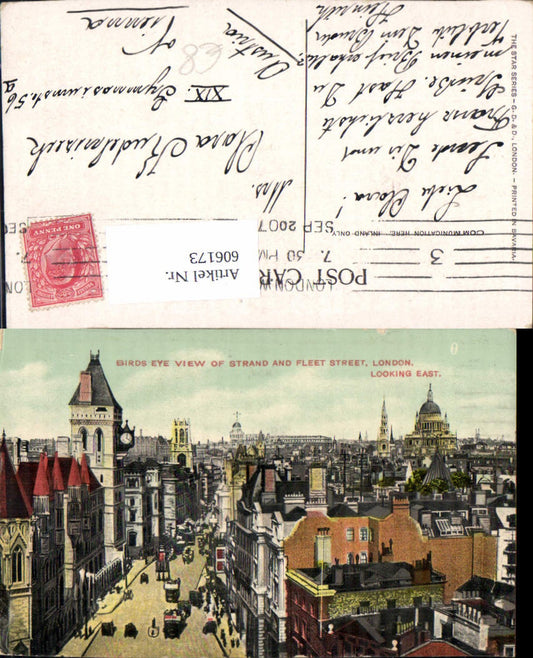 THE STAR SERIES – G. D. & D., LONDON. – PRINTED IN BAVARIA.
POST CAR
COMMUNICATION HERE, INLAND ONLY.
LONDON
7. 30 PM
SEP 2007
3
Liebe Clara!
Sende Dir und
Franz herzlichste
Grüße. Hast Du
meinen Brief erhalten?
Dein Bruder
Heinrich
Mrs.
Clara
XIX. Gymnasiumstr. 56
Vienna
Austria
68
ONE PENNY
Artikel Nr.
606173
BIRDS EYE VIEW OF STRAND AND FLEET STREET, LONDON,
LOOKING EAST.